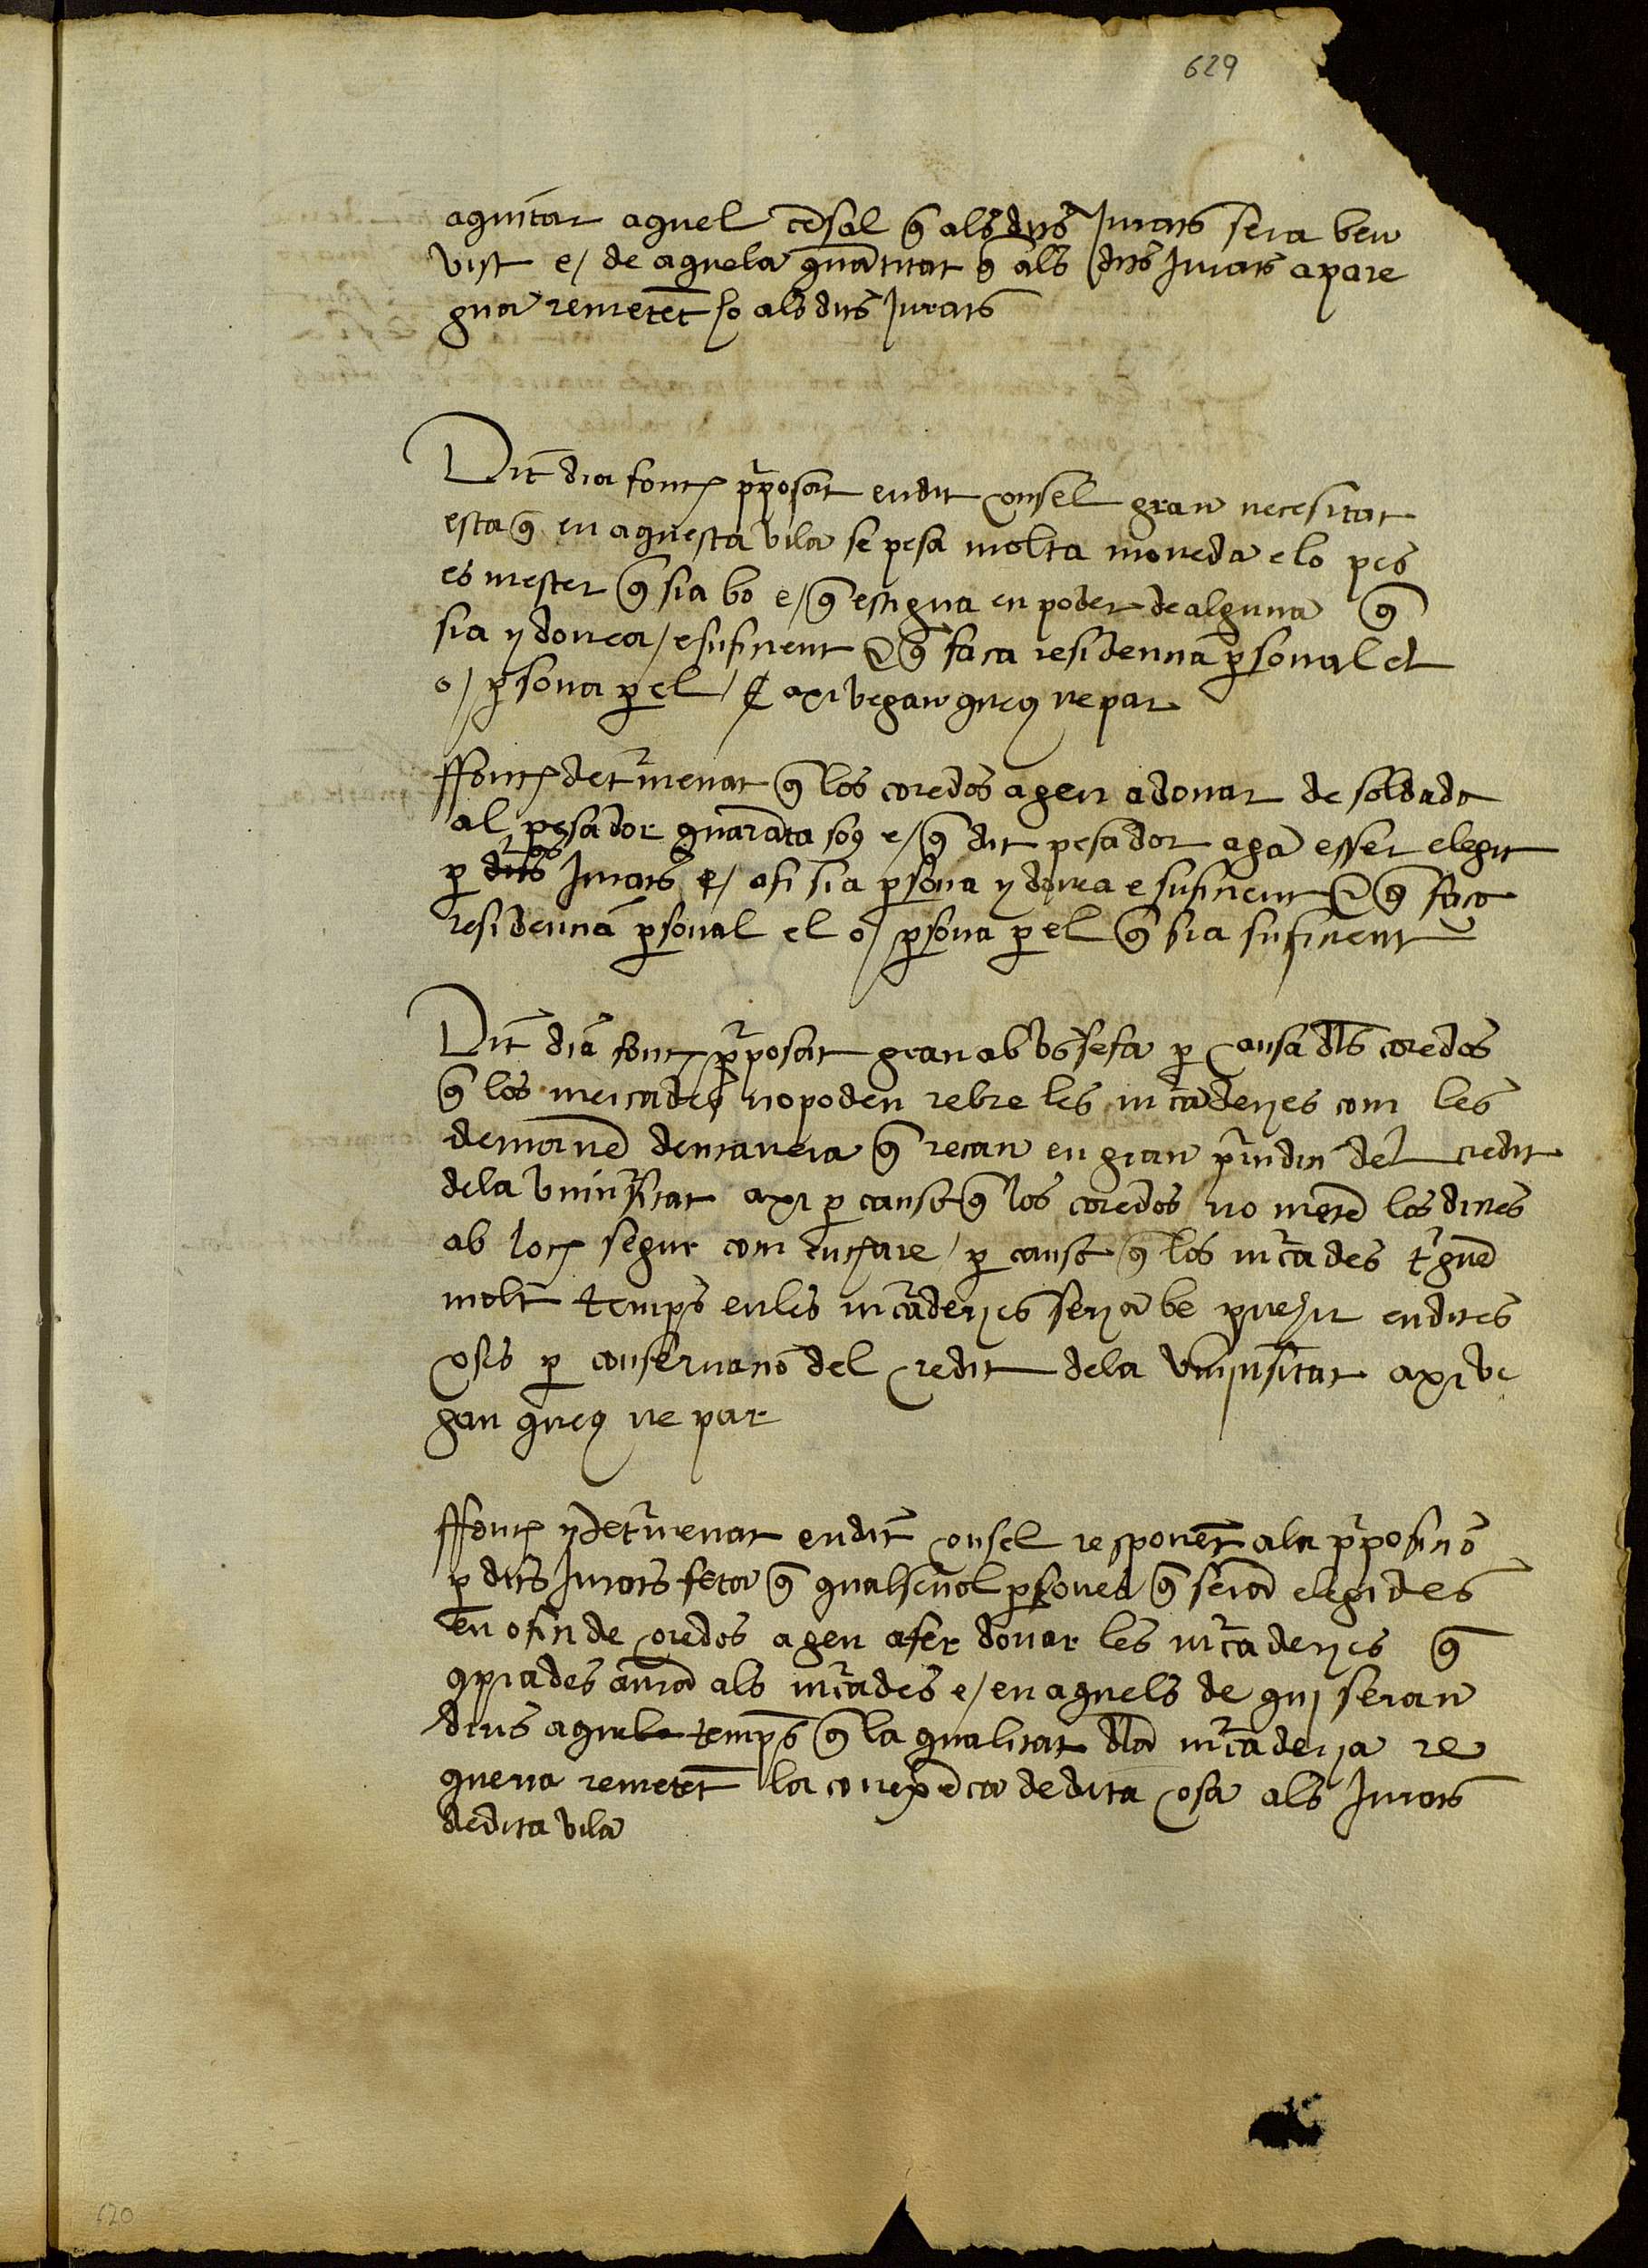 629
aquitar aquel cēsal q̄ als dits Jurats sera ben
vist e/ de aquela quātitat q̄ als dits Jurats apare
gua remetēt ho als dits Jurats
Dit dia fonch pposat en dit consel gran necesitat
esta q̄ en aquesta vila se pesa molta moneda e lo pes
es mester q̄ sia bo e/ q̄ estigua en poder de alguna q̄
sia ydonea/ e suficient e q̄ faca residencia psonal el
o/ psona p el/ E axi vegan queus ne par
ffonch detmenat q̄ los coredos agen a donar de soldada
al pesador quarāta sos e/ q̄ dit pesador aga esser elegit
p dits Jurats e/ asi sia psona ydonea e suficient e q̄ faca
residencia psonal el o/ psona p el q̄ sia suficient
Dit dia fonch pposat gran abus se fa p causa dls coredos
q̄ los mercades no poden rebre les mcaderyes com les
demanē de manera q̄ recau en gran piudici del credit
dela vniusitat axi p causa q̄ los coredos no metē los dines
ab loch segur com encare/ p causa q̄ los mcades tguē
molt temps en les mcaderyes serya be prouehit en dites
coses p conseruacio del credit dela vniusitat axi ve
gan queus ne par
ffonch ydetmenat en dit consel responēt ala pposicio
p dits Jurats feta q̄ qualseuol psones q̄ serā elegides
en ofici de coredos agen a fer donar les mcaderyes q̄
cprades aurā als mcades e/ en aquels de qui seran
dins aquel temps q̄ la qualitat dla mcaderya re
querra remetēt la conexēca de dita cosa als Jurats
dedita vila
620